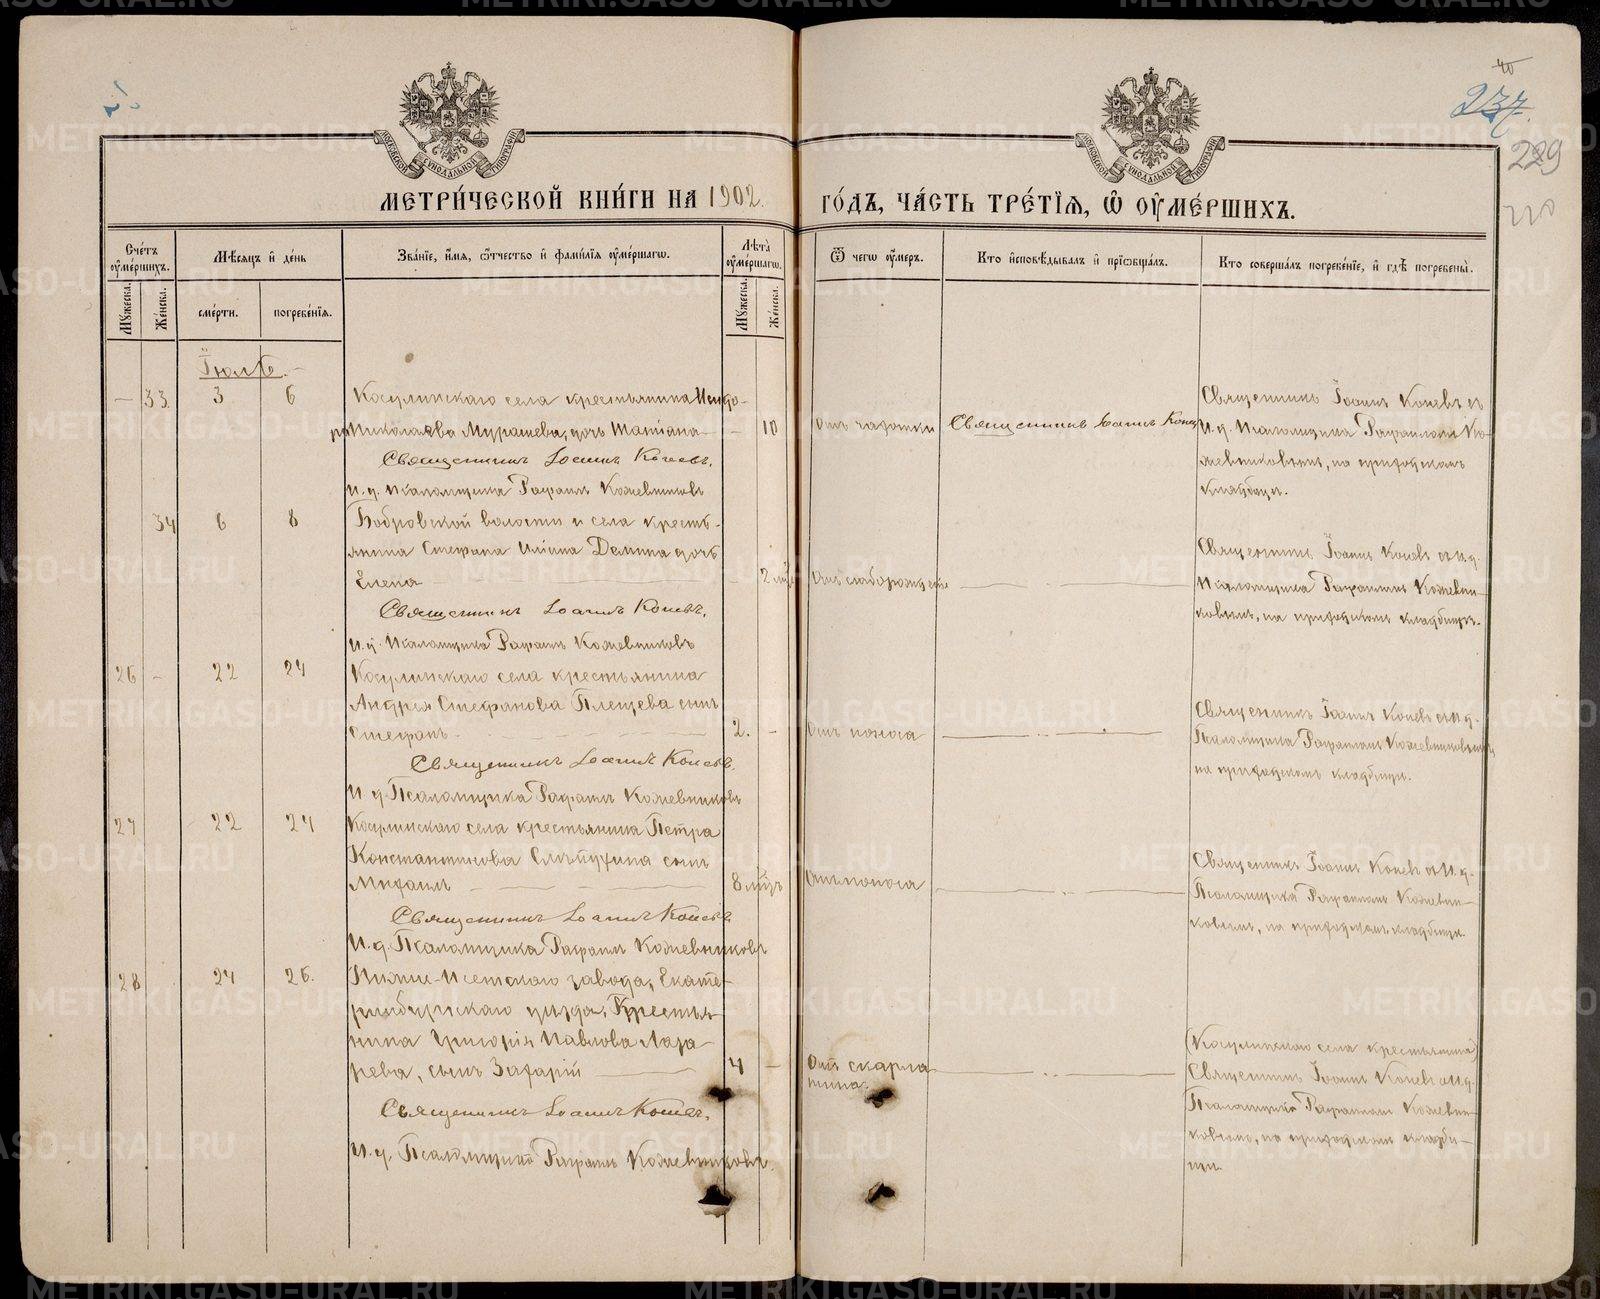 40
237.
229
220
МЕТРИ́ЧЕСКОЙ КНИ́ГИ НА 1902.
ГО́ДЪ, ЧА́СТЬ ТРЕ́ТІЯ, Ѽ ОУ҆МЕ́РШИХЪ.
Сче́тъ оу҆ме́ршихъ.
Мѣ́сяцъ и҆ де́нь
Зва́нїе, и҆́мя, ѻ҆́тчество и҆ фами́лїя оу҆ме́ршагѡ.
Лѣ́та оу҆ме́ршагѡ.
Ѿ чегѡ̀ оу҆́меръ.
Кто̀ и҆сповѣ́дывалъ и҆ прїѡбща́лъ.
Кто̀ соверша́лъ погребе́нїе, и҆ гдѣ̀ погребены̀.
Мꙋ́жеска.
Же́нска.
сме́рти.
погребе́нїя.
Мꙋ́жеска.
Же́нска.
Іюль.
— 33. 3 6
Косулинскаго села крестьянина Исидо-
ра Николаева Мурашева, дочь Татіана — 10
Отъ чахотки
Священникъ Іоаннъ Коневъ
Священникъ Іоаннъ Коневъ съ
и. д. Псаломщика Рафаиломъ Ко-
жевниковымъ, на приходскомъ
кладбищѣ.
Священникъ Іоаннъ Коневъ.
И. д. Псаломщика Рафаилъ Кожевниковъ
34 6 8
Бобровской волости и села кресть-
янина Стефана Илiина Демина дочь
Елена 2 мѣс.
Отъ слаборожденія
Священникъ Іоаннъ Коневъ съ и. д.
Псаломщика Рафаиломъ Кожевни-
ковымъ, на приходскомъ кладбищѣ.
Священникъ Іоаннъ Коневъ.
И. д. Псаломщика Рафаилъ Кожевниковъ
26 — 22 24
Косулинскаго села крестьянина
Андрея Стефанова Плещева сынъ
Стефанъ 2. —
Отъ поноса
Священникъ Іоаннъ Коневъ съ и. д.
Псаломщика Рафаиломъ Кожевниковымъ
на приходскомъ кладбищѣ.
Священникъ Іоаннъ Коневъ.
И. д. Псаломщика Рафаилъ Кожевниковъ
27 22 24
Косулинскаго села крестьянина Петра
Константинова сынъ
Михаилъ 8 мѣс.
Отъ поноса
Священникъ Іоаннъ Коневъ съ и. д.
Псаломщика Рафаиломъ Кожевни-
ковымъ, на приходскомъ кладбищѣ.
Священникъ Іоаннъ Коневъ.
И. д. Псаломщика Рафаилъ Кожевниковъ
28 24 26.
Нижне-Исетскаго завода, Екате-
ринбургскаго уѣзда, Крестья-
нина Григорія Павлова Лаза-
рева, сынъ Захарій 4 —
Отъ скарла-
тины.
(Косулинскаго села крестьянина)
Священникъ Іоаннъ Коневъ съ и. д.
Псаломщика Рафаиломъ Кожевни-
ковымъ, на приходскомъ кладби-
щѣ.
Священникъ Іоаннъ Коневъ.
И. д. Псаломщика Рафаилъ Кожевниковъ.
METRIKI.GASO-URAL.RU